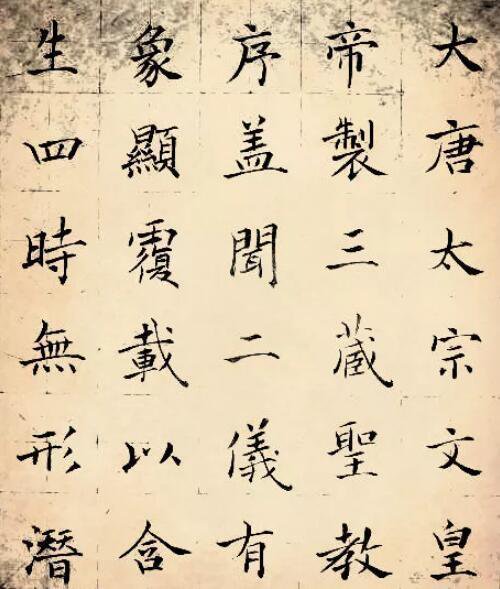 大唐太宗文皇
帝製三蔵聖教
序盖聞二儀有
象顯覆載以含
生四時無形潛